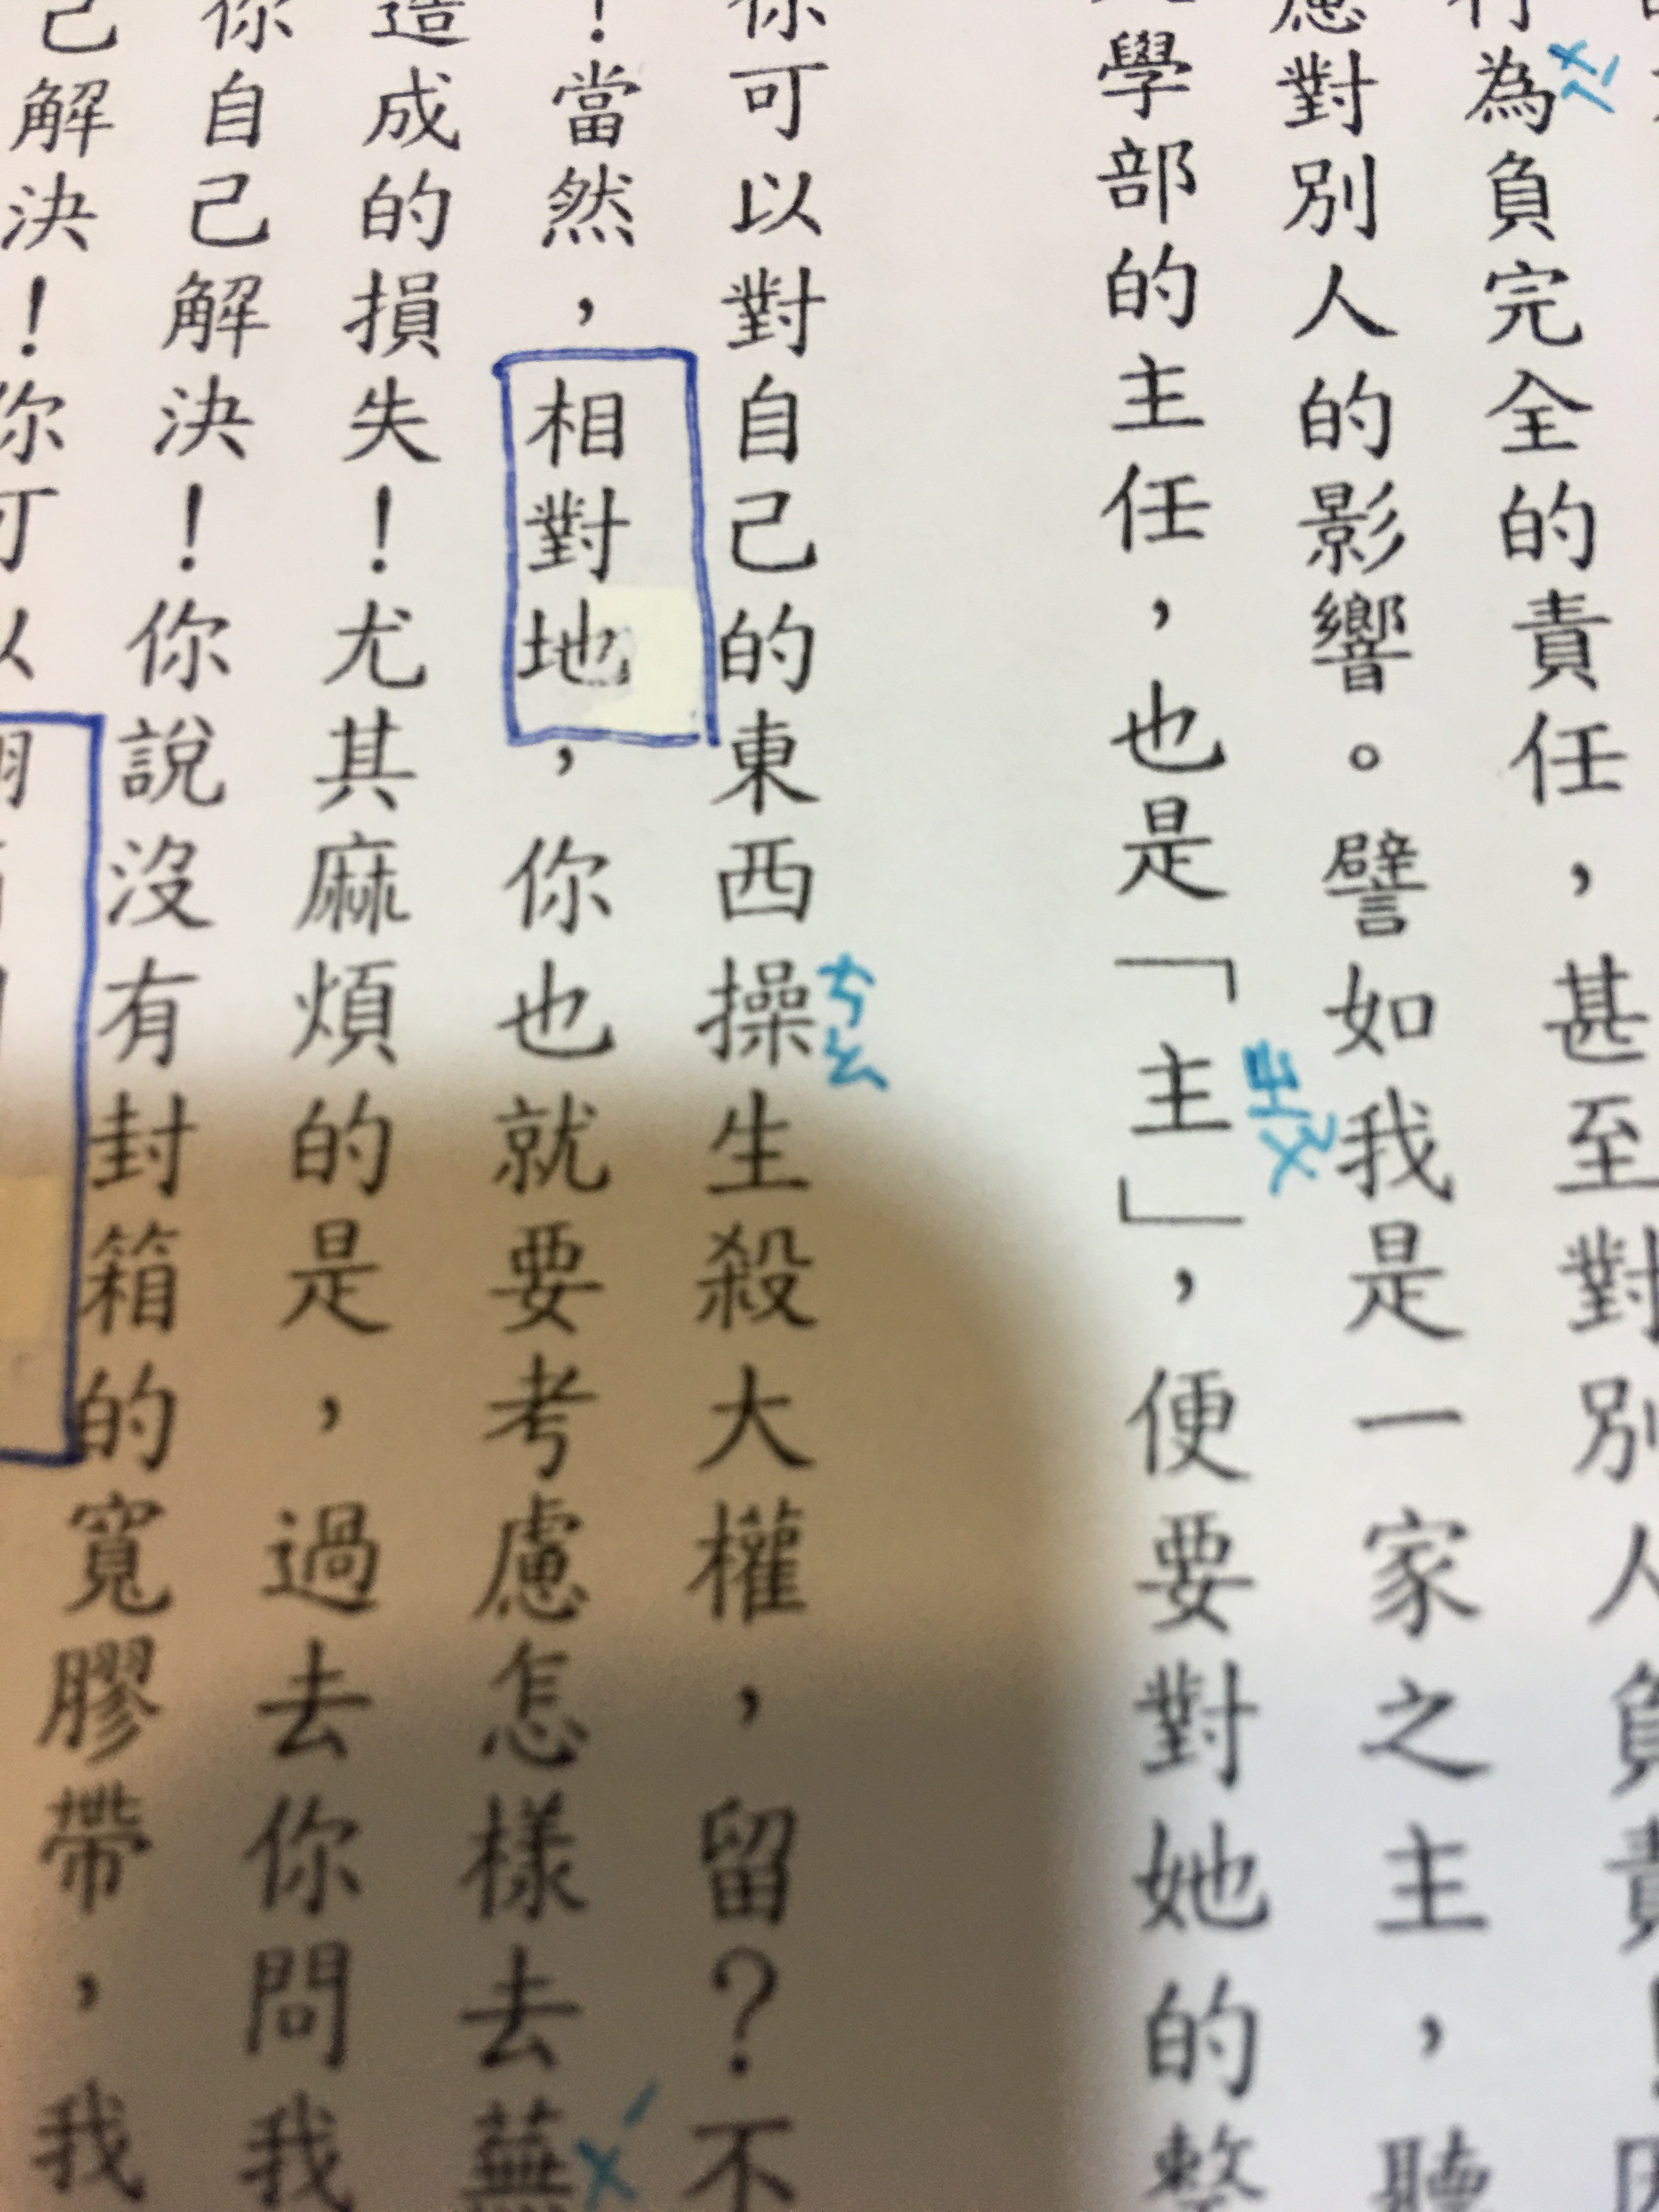 為負完全的責任，甚至對別人負責
ㄨㄟˊ
應對別人的影響。譬如我是一家之主，聽
學部的主任，也是「主」，便要對她的整
ㄓㄨˇ
你可以對自己的東西操生殺大權，留？不
ㄘㄠ
！當然，相對地，你也就要考慮怎樣去蕪
ㄨˊ
造成的損失！尤其麻煩的是，過去你問我
你自己解決！你說沒有封箱的寬膠帶，我
己解決！你可以